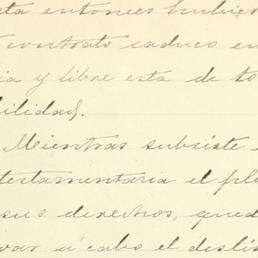 ta entonces hubier
contrato caduco en
ia y libre esta de to
bilidad.
Mientras subsiste
testamentaria el pla
sus derechos, qued
var á cabo el desli